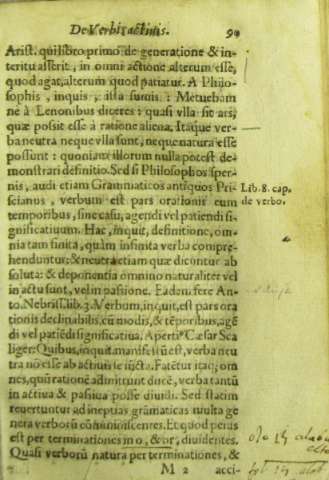 De Verbis actiuis. 90
Arist. qui libro primo de generatione & in-
teritu asserit, in omni actione alterum esse,
quod agat, alterum quod patiatur. A Philo-
sophis, inquis, ista sumis: Metuebam
ne à Lenonibus diceres: quasi vlla sit ars,
quæ possit esse à ratione aliena. Itaque ver-
ba neutra neque vlla sunt, neque natura esse
possunt: quoniam illorum nulla potest de-
monstrari definitio. Sed si Philosophos sper-
nis, audi etiam Grammaticos antiquos Pri-
scianus, verbum est pars orationis cum
temporibus, sine casu, agendi vel patiendi si-
gnificatiuum. Hac, inquit, definitione, om-
nia tam finita, quàm infinita verba compre-
henduntur: & neutra etiam quæ dicuntur ab-
soluta: & deponentia omnino naturaliter vel
in actu sunt, vel in passione. Eadem fere An-
to. Nebriss. lib. 3. Verbum, inquit, est pars ora
tionis declinabilis, cū modis, & tēporibus, agē
di vel patiēdi significatiua. Apertiº Cæsar Sca
liger: Quibus, inquit, manifestū est, verba neu
tra nō esse ab actiuis seiūcta. Fatetur itaq; om
nes, quū rationē admittunt ducē, verba tantū
in actiua & passiua posse diuidi. Sed statim
reuertuntur ad ineptas grāmaticas multa ge
nera verborū cōminiscentes. Et quod peius
est per terminationes in o, & or, diuidentes.
Quasi verborū natura per terminationes, &
M 2 acci-
Lib. 8. cap.
de verbo.